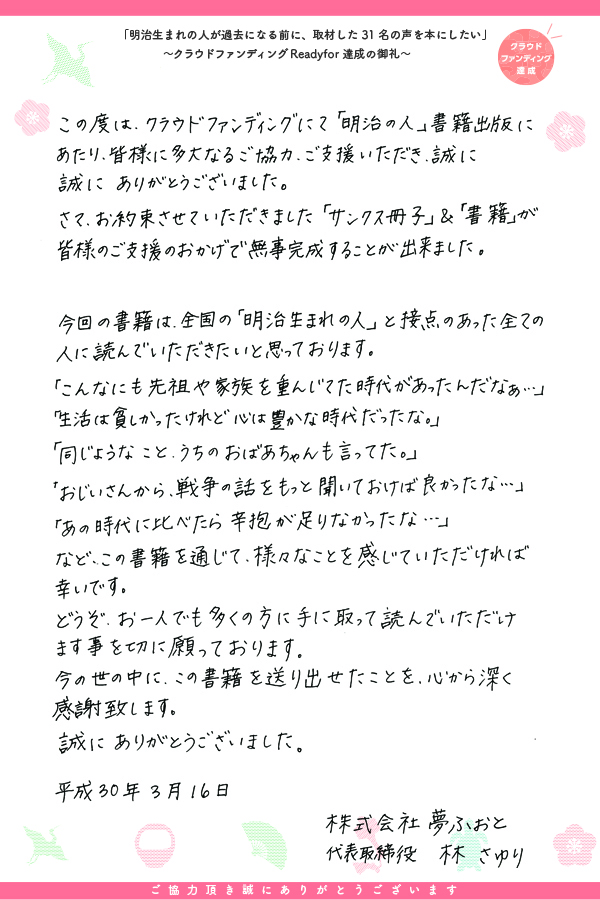 「明治生まれの人が過去になる前に、取材した31名の声を本にしたい」
～クラウドファンディングReadyfor達成の御礼～
クラウド
ファンディング
達成
この度は、クラウドファンディングにて「明治の人」書籍出版に
あたり、皆様に多大なるご協力、ご支援いただき、誠に
誠に ありがとうございました。
さて、お約束させていただきました「サンクス冊子」&「書籍」が
皆様のご支援のおかげで無事完成することが出来ました。
今回の書籍は、全国の「明治生まれの人」と接点のあった全ての
人に読んでいただきたいと思っております。
「こんなにも先祖や家族を重んじてた時代があったんだなぁ…」
「生活は貧しかったけれど心は豊かな時代だったな。」
「同じようなこと、うちのおばあちゃんも言ってた。」
「おじいさんから、戦争の話をもっと聞いておけば良かったな…」
「あの時代に比べたら辛抱が足りなかったな…」
など、この書籍を通じて、様々なことを感じていただければ
幸いです。
どうぞ、お一人でも多くの方に手に取って読んでいただけ
ます事を切に願っております。
今の世の中に、この書籍を送り出せたことを、心から深く
感謝致します。
誠に ありがとうございました。
平成30年3月16日
株式会社 夢ふぉと
代表取締役 林 さゆり
ご協力頂き誠にありがとうございます